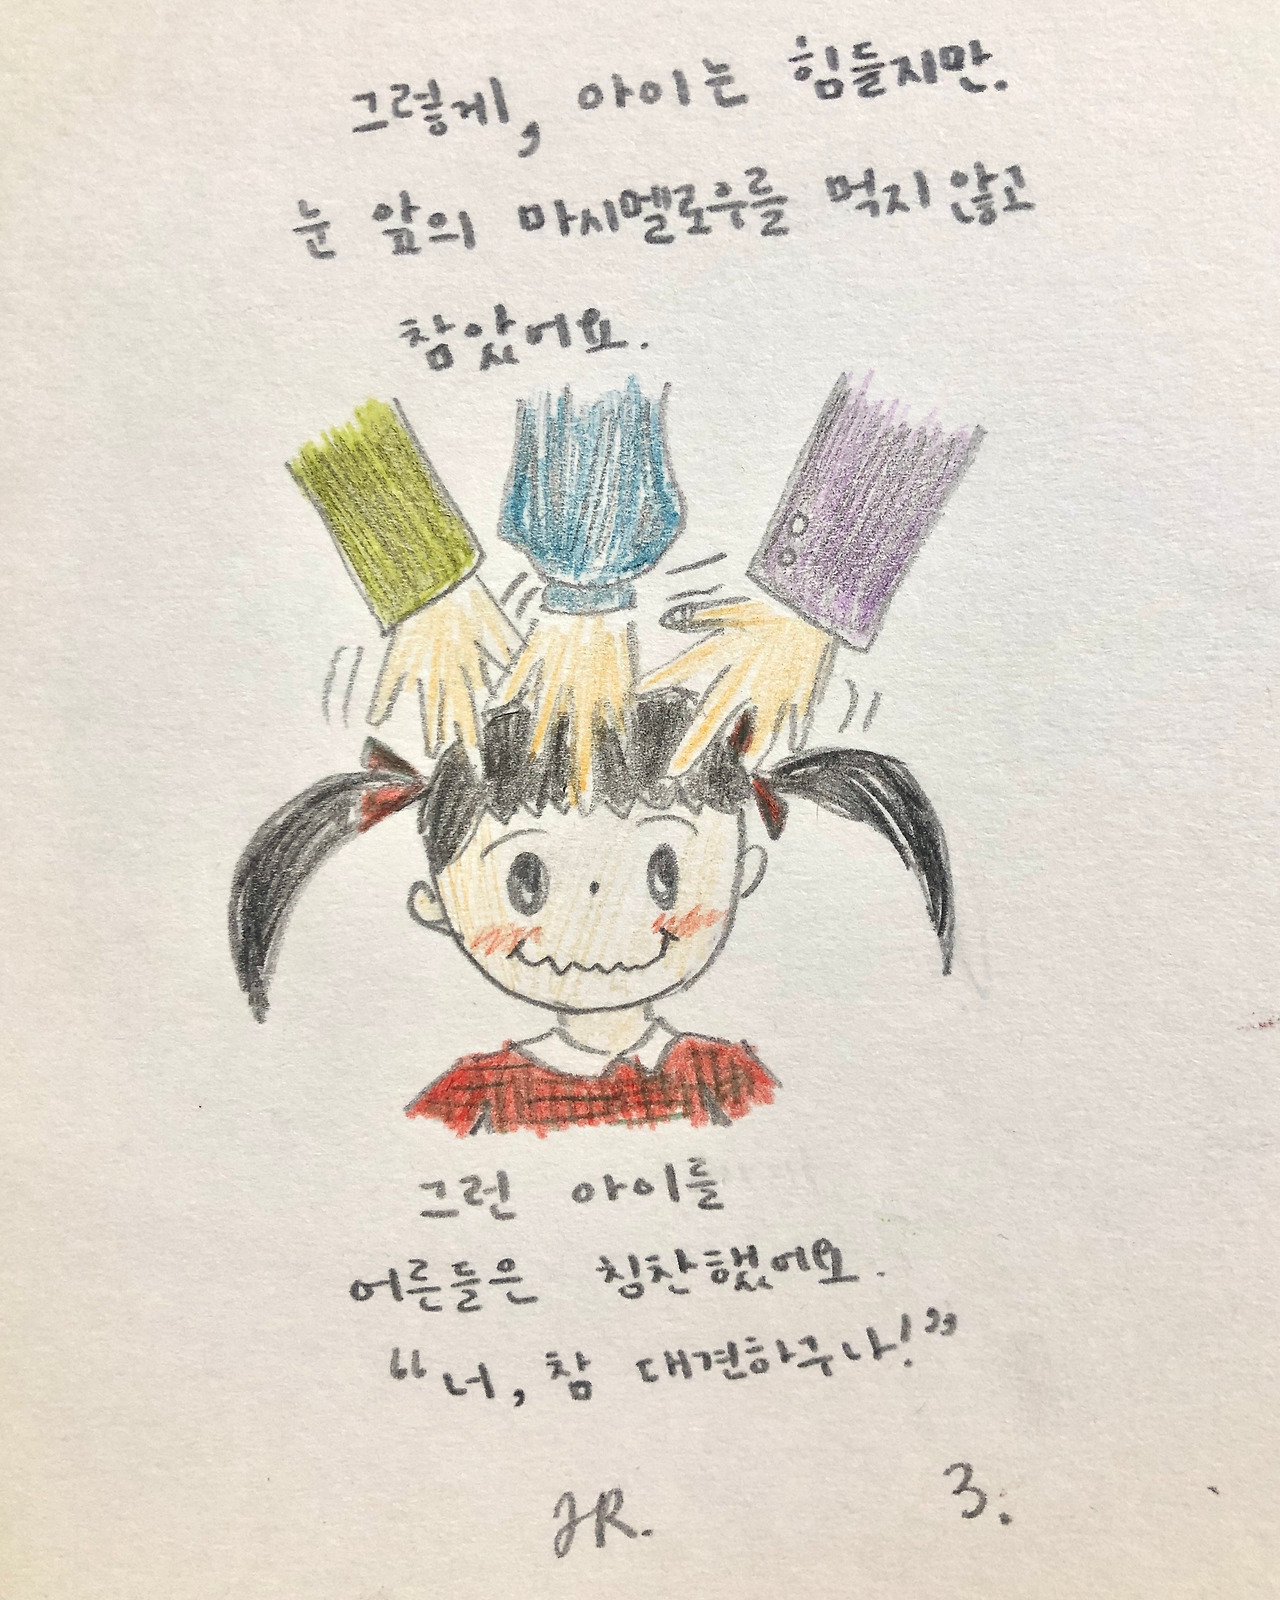 그렇게, 아이는 힘들지만.
눈 앞의 마시멜로우를 먹지 않고
참았어요.
그런 아이를
어른들은 칭찬했어요.
"너, 참 대견하구나!"
JR.
3.